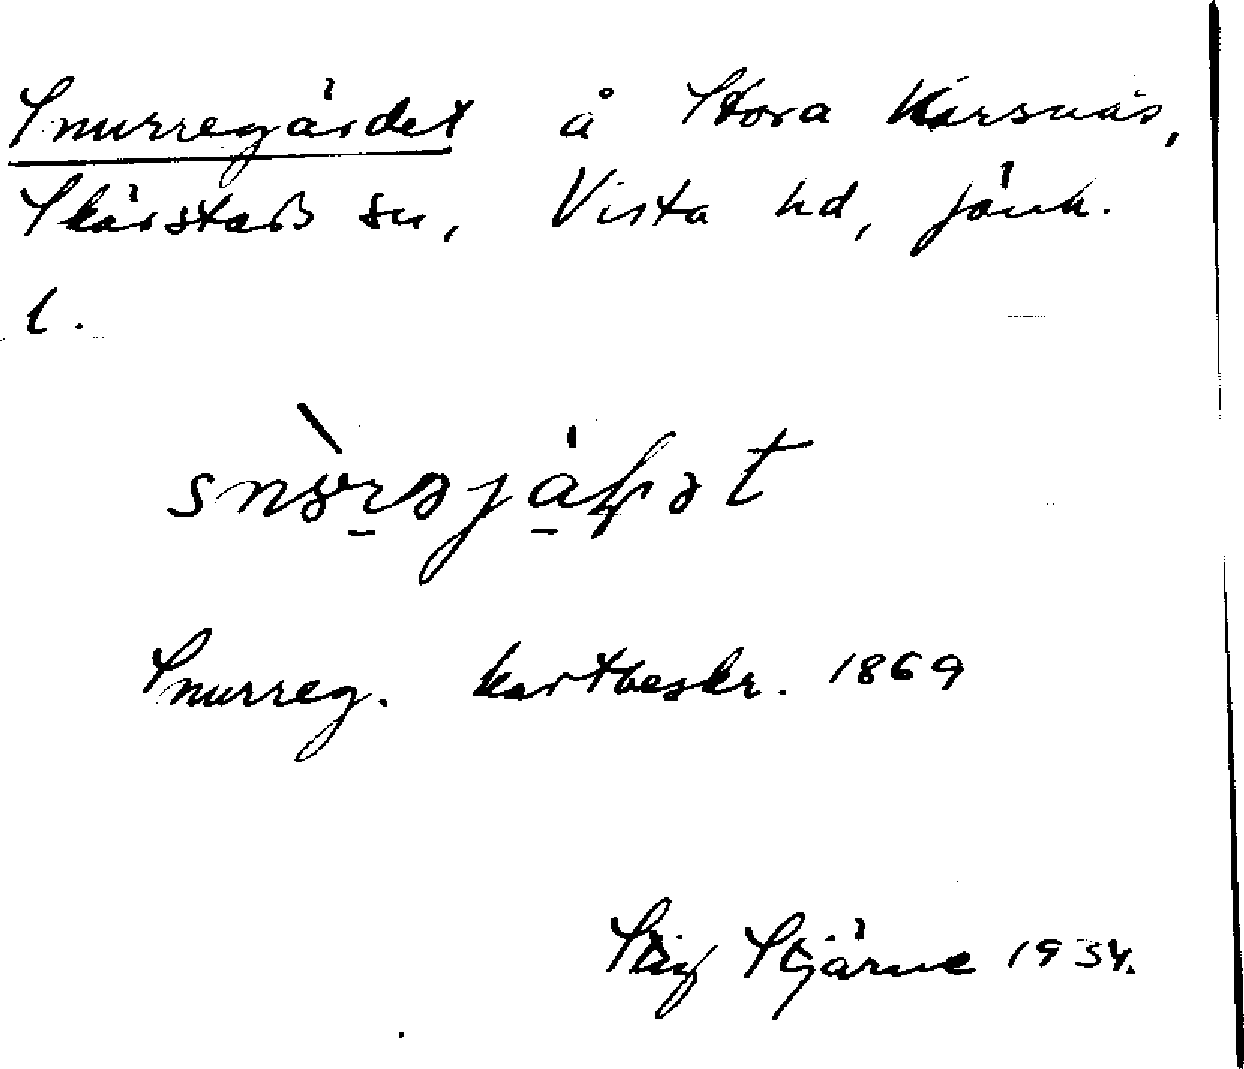 Snurregärdet å Stora Kärsnäs,
Skärstads sn, Vista hd, Jönk.
l.
Snurreg. kartbeskr. 1869
Stig Stjärne 1934.